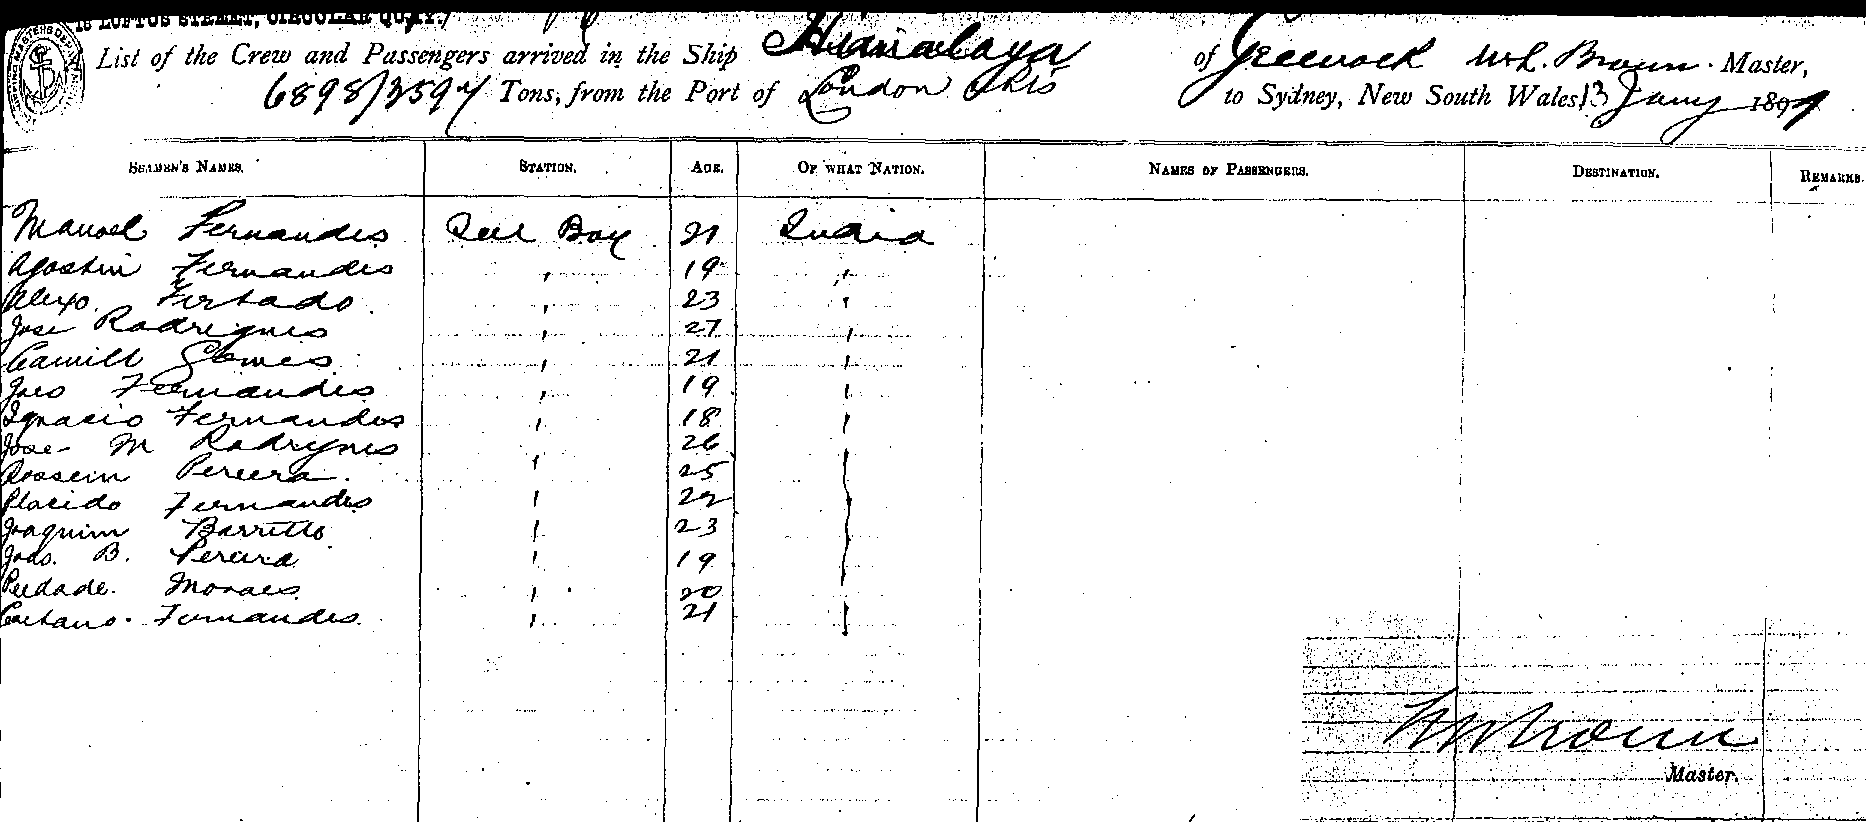 18 LOFTUS STREET, CIRCULAR QUAY.)
List of the Crew and Passengers arrived in the Ship Himalaya of Greenock W. L. Broun. Master,
6898/3597 Tons, from the Port of London to Sydney, New South Wales, 13 Jany 1897
SEAMEN'S NAMES. STATION. AGE. OF WHAT NATION. NAMES OF PASSENGERS. DESTINATION. REMARKS.
Manoel Fernandes Boy 21 India
Agostin Fernandes " 19 "
Alexo Furtado " 23 "
Jose Rodrigues " 27 "
Camill Gomes " 21 "
Joao Fernandes " 19 "
Ignacio Fernandes " 18 "
Jose M Rodrigues " 26 "
Pereira. " 25 "
Placido Fernandes " 22 "
Joaquim Barretto " 23 "
Joao. B. Pereira " 19 "
Piedade. Moraes " 20 "
Caetano. Fernandes " 21 "
Broun
Master.